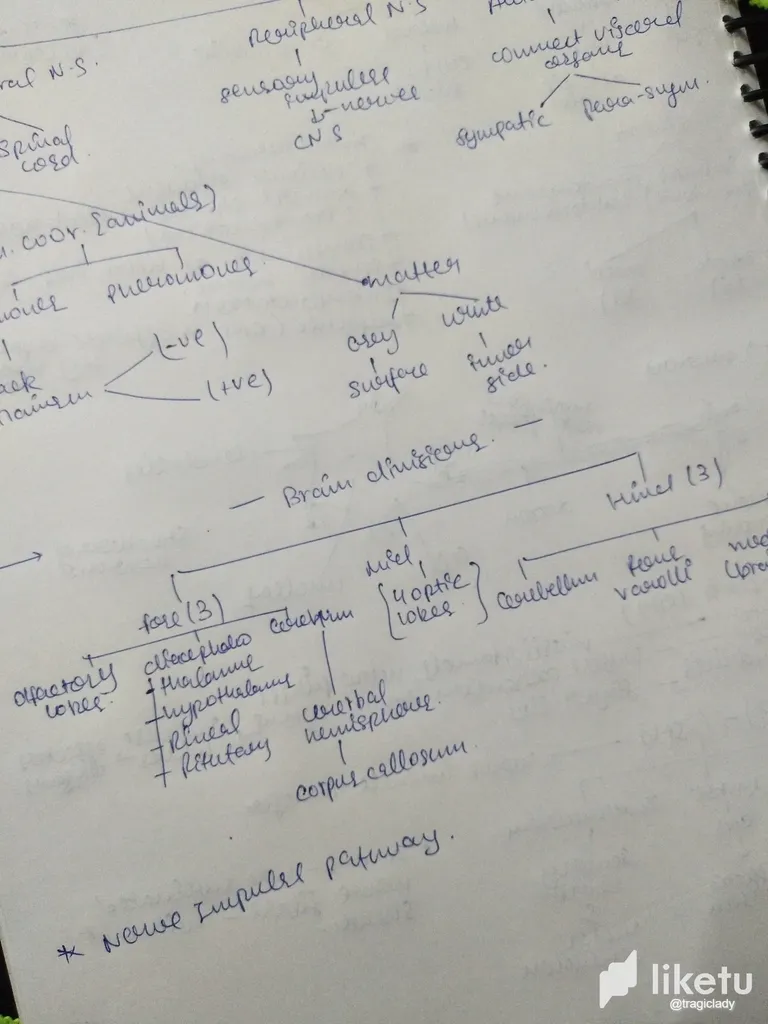 Peripheral N.S
ral N.S.
connect visceral
organs
sensory
impulses
nerves
CNS
spinal
cord
sympatic para-sym.
coor. (animals)
pheromones
matter
grey white
surface inner
side.
(-ve)
(+ve)
— Brain divisions. —
fore (3) Mid Hind (3)
olfactory
lobes.
diecephalo
thalamus
hypothalamus
Pineal
Pitutary
cerebrum
cerebal
hemisphere.
corpus callosum
[4 optic
lobes]
Cerebellum Pons
varolli
* Nerve Impulse pathway.
liketu
@tragiclady